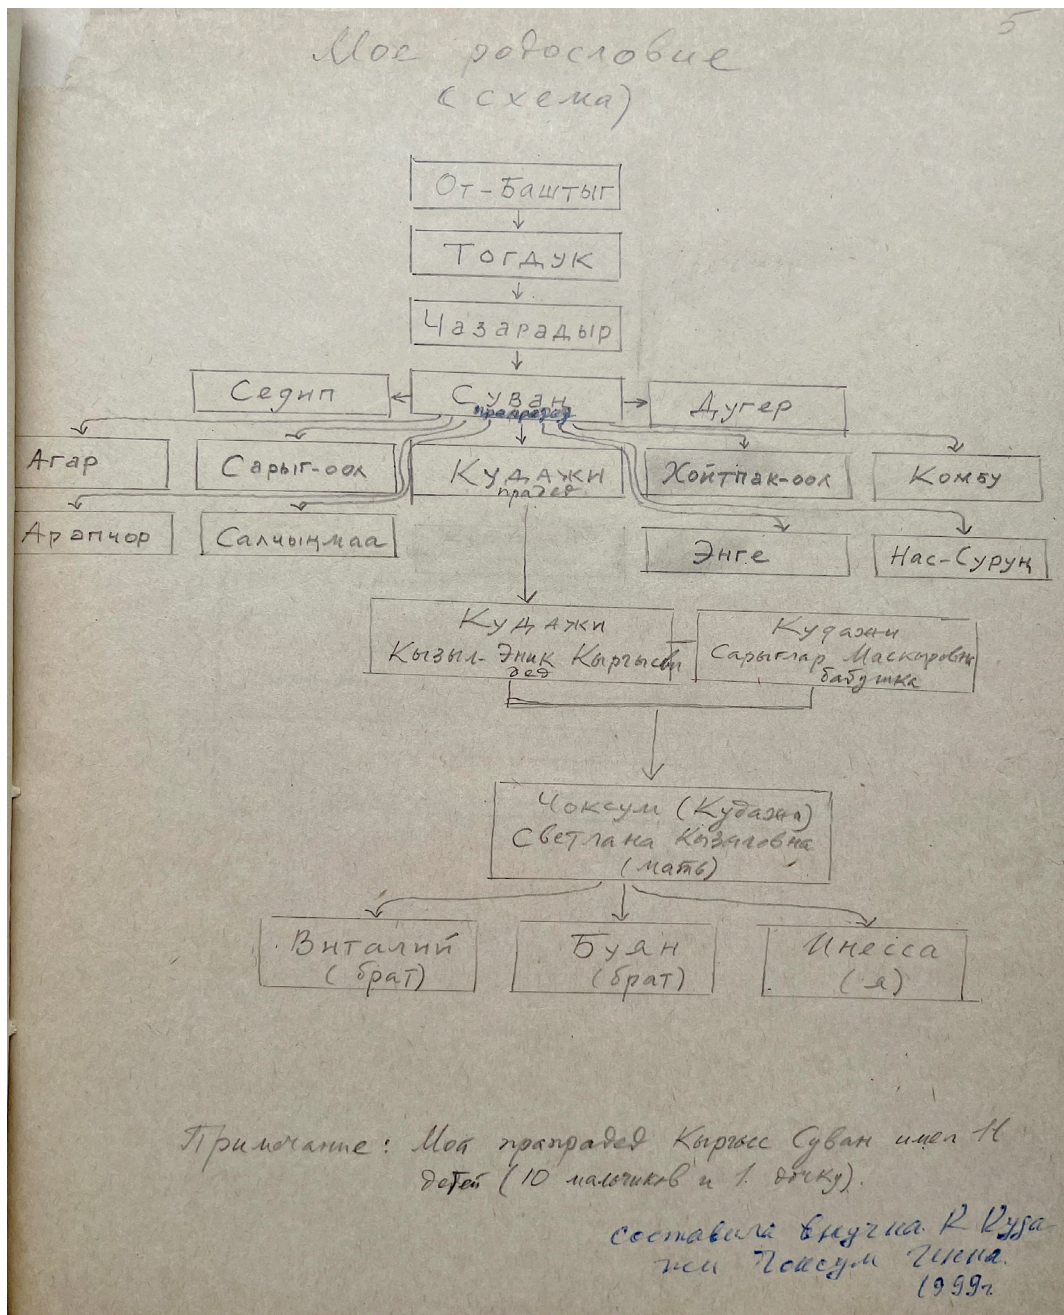 5
Мое родословие
(схема)
От-Баштыг
Тогдук
Чазарадыр
Седип
Суван
прапрадед
Дугер
Агар
Сарыг-оол
Кудажи
прадед
Хойтпак-оол
Комбу
Арапчор
Салчыңмаа
Энге
Нас-Суруң
Кудажи
Кызыл-Эник Кыргысович
дед
Кудажи
Сарыглар Маскыровна
бабушка
Чоксум (Кудажи)
Светлана Кызыловна
(мать)
Виталий
(брат)
Буян
(брат)
Инесса
(я)
Примечание: Мой прапрадед Кыргыс Суван имел 11
детей (10 мальчиков и 1 дочку).
составила внучка К Куда-
жи Чоксум Инна.
1999г